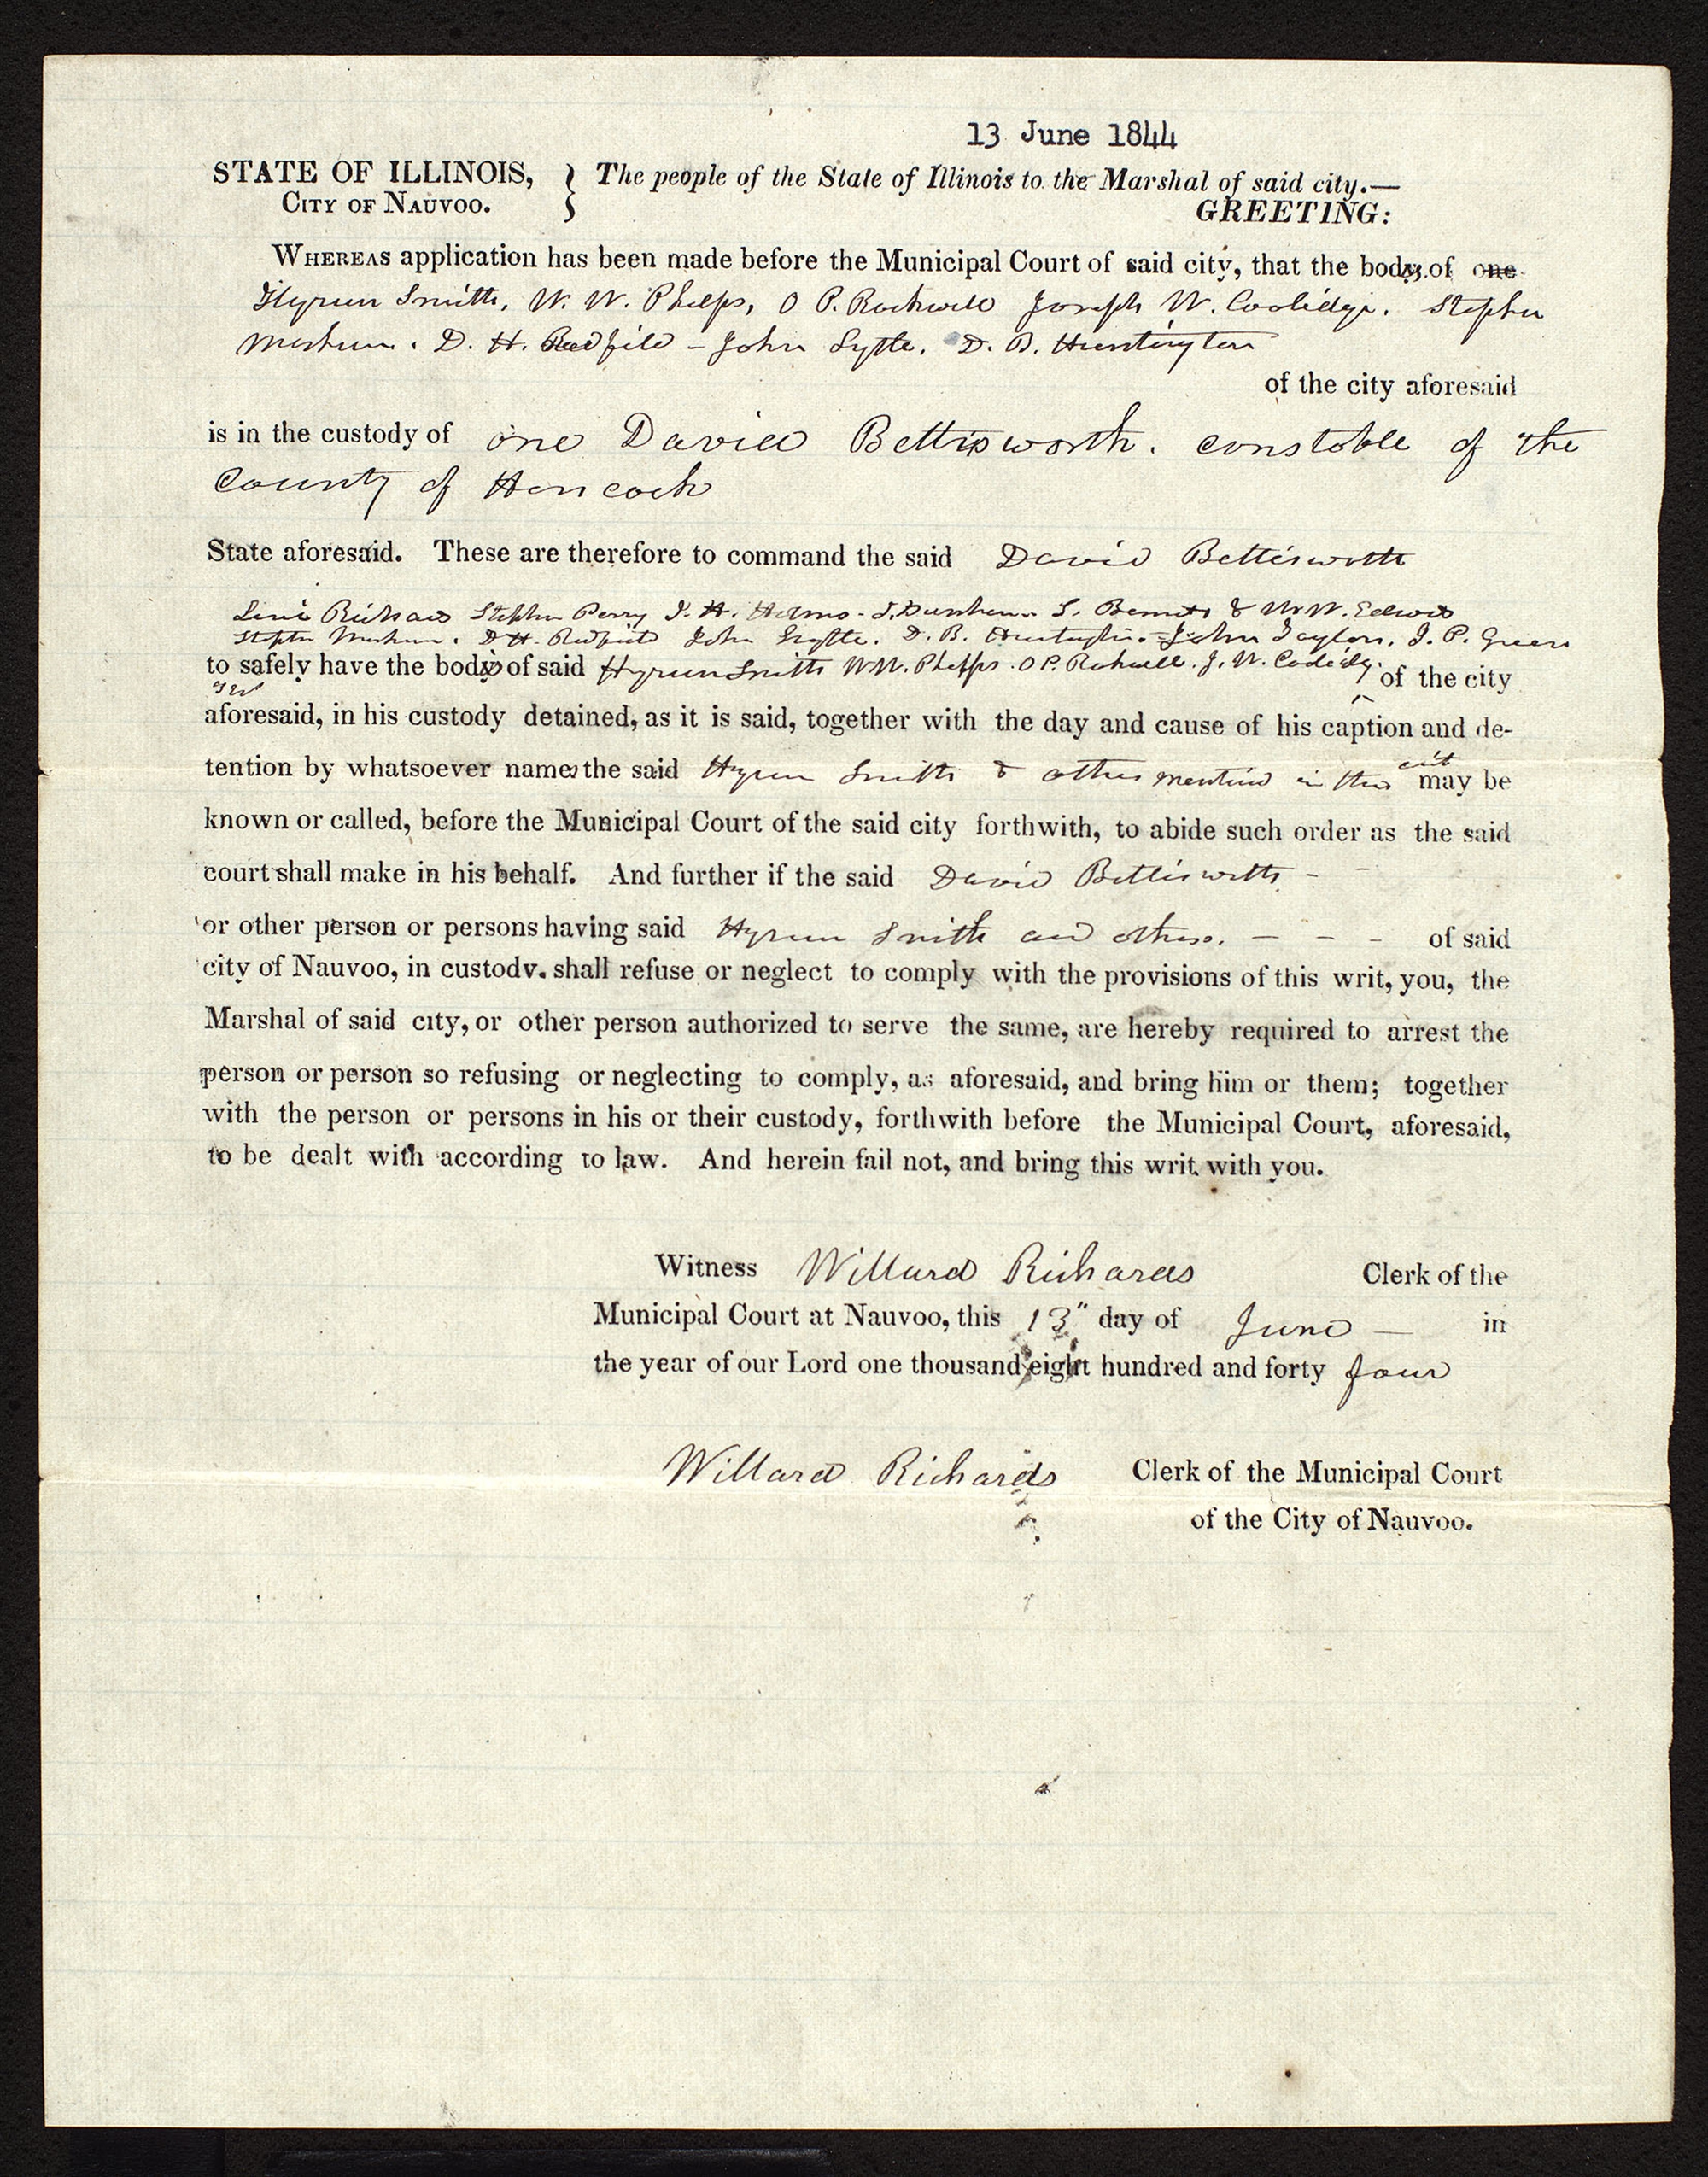 13 June 1844
STATE OF ILLINOIS, } The people of the State of Illinois to the Marshal of said city.—
CITY OF NAUVOO. GREETING:
WHEREAS application has been made before the Municipal Court of said city, that the bodys of one
Hyrum Smith, W. W. Phelps, O P. Rockwell Joseph W. Coolidge. Stephen
Markham. D. H. Redfield - John Lytle. D. B. Huntington
of the city aforesaid
is in the custody of one David Bettisworth. constable of the
County of Hancock
State aforesaid. These are therefore to command the said David Bettisworth
Levi Richards Stephen Perry J. H. Holmes - J. Dunham. S. Bennett & W. W. Edwards
Stephen Markham. D H. Redfield John Lytle. D. B. Huntington. - John Taylor. J. P. Green
to safely have the bodis of said Hyrum Smith W W. Phelps. O P. Rockwell. J. W. Coolidge. of the city
aforesaid, in his custody detained, as it is said, together with the day and cause of his caption and de-
tention by whatsoever names the said Hyrum Smith & others mentiond in this may be
known or called, before the Municipal Court of the said city forthwith, to abide such order as the said
court shall make in his behalf. And further if the said David Bettisworth - -
or other person or persons having said Hyrum Smith and others. - - - of said
city of Nauvoo, in custody. shall refuse or neglect to comply with the provisions of this writ, you, the
Marshal of said city, or other person authorized to serve the same, are hereby required to arrest the
person or person so refusing or neglecting to comply, as aforesaid, and bring him or them; together
with the person or persons in his or their custody, forthwith before the Municipal Court, aforesaid,
to be dealt with according to law. And herein fail not, and bring this writ with you.
Witness Willard Richards Clerk of the
Municipal Court at Nauvoo, this 13" day of June — in
the year of our Lord one thousand eight hundred and forty four
Willard Richards Clerk of the Municipal Court
of the City of Nauvoo.